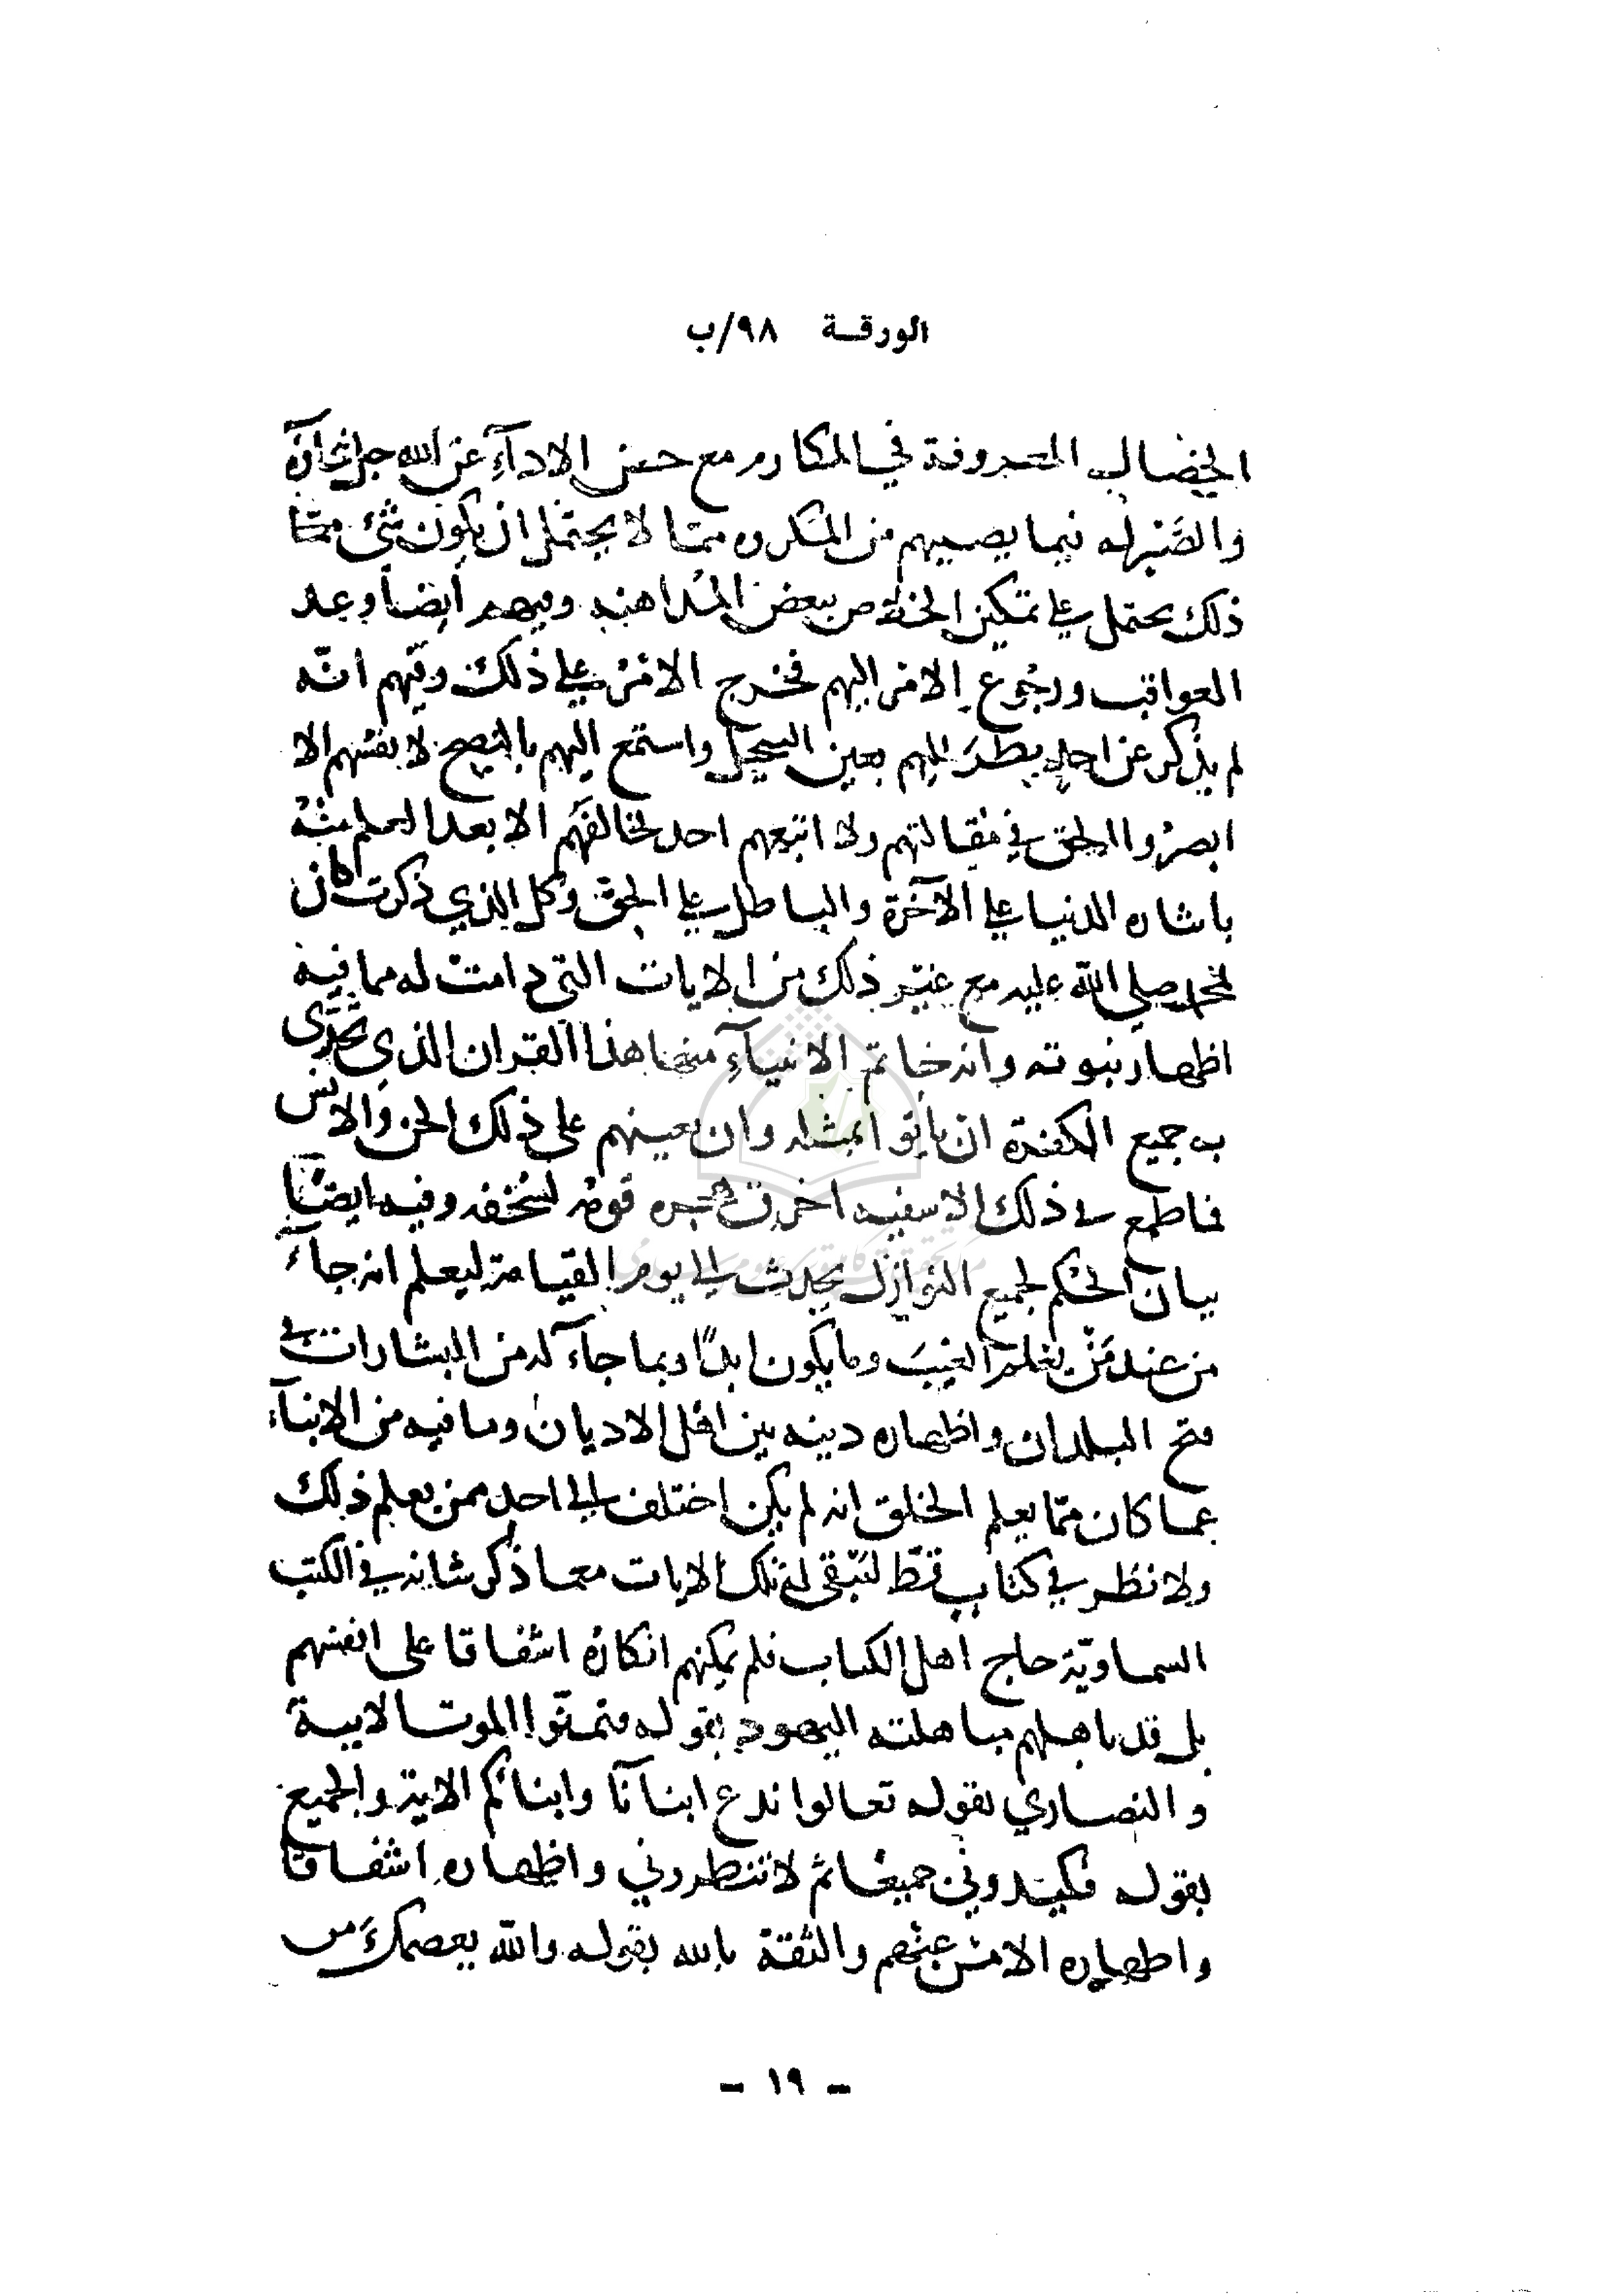 الورقة ٩٨/ب
الخصال المعروفة في المكارم مع حسن الاداء عن الله جل ثناؤه
والصبر له فيما يصيبهم من المكروه مما لا يحتمل ان يكون شيء مما
ذلك يحتمل على تمكين الحظ من ببعض المداهنه وفيهم أيضا وعد
العواقب ورجوع الامر اليهم فخرج الامر على ذلك وفيهم انه
لم يذكر عن احد ينظر اليهم بعين التبجيل واستمع اليهم بالنصح لا بفتنهم الا
ابصروا الحق في مقالتهم ولا اتبعهم احد لخالفهم الا بعد العلم منه
باشاره الدنيا على الآخرة والباطل على الحق وكل الذي ذكرت كان
لمحمد صلى الله عليه مع غير ذلك من الايات التي دامت له مما فيه
اظهار نبوته وانه خاتم الانبياء منها هذا القران الذي تحدى
به جميع الكفرة ان ياتو ا بمثله وان يعينهم على ذلك الجن والانس
فما طمع في ذلك الا سفيه اخرق قومه لسخفه وفيه ايضا
بيان الحكم لجميع النوازل يحدث الى يوم القيامة ليعلم انه جاء
من عند من يعلم الغيب وما يكون ابدا وبما جاء له من البشارات في
فتح البلدان واظهاره دينه بين اهل الاديان وما فيه من الانباء
عما كان مما يعلم الخلق انه لم يكن اختلف الى احد ممن يعلم ذلك
ولا نظر في كتاب قط لتبقى له تلك الايات معما ذكر شانه في الكتب
السماوية حاج اهل الكتاب فلم يمكنهم انكاره اشفاقا على انفسهم
بل قد باهلهم مباهلته اليهود بقوله فتمنوا الموت الاية
والنصارى بقوله تعالوا ندع ابنانا وابنائكم الاية والجميع
بقوله فكيدوني جميعا ثم لا تنظروني واظهاره اشفاقا
واظهاره الامن عنهم والثقة بالله بقوله والله يعصمك من
- ١٩ -